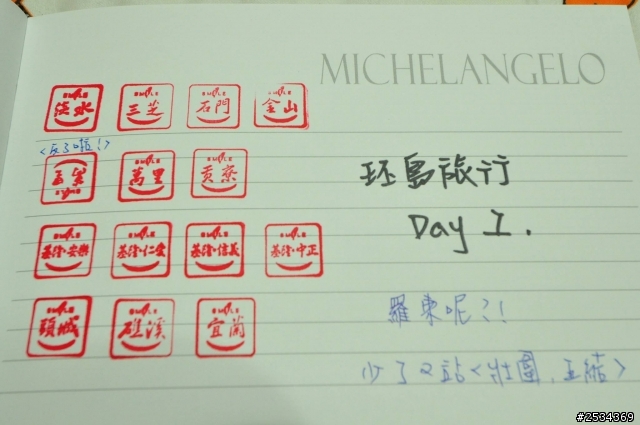 MICHELANGELO
淡水 三芝 石門 金山
<反了啦!>
萬里 貢寮
环島旅行
Day 1.
基隆·安樂 基隆·仁愛 基隆·信義 基隆·中正
頭城 礁溪 宜蘭
羅東呢?!
少了2站<壯圍,五結>
#2534369